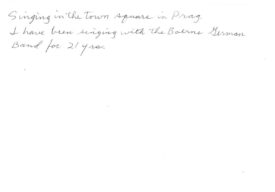 Singing in the town square in Prag
I have been singing with the Boerne German
Band for 21 yrs.